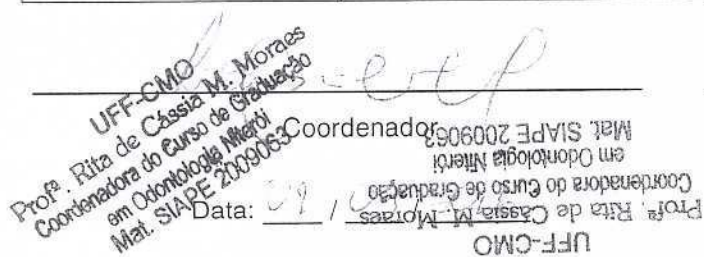 UFF-CMO
Profª. Rita de Cássia M. Moraes
Coordenadora do Curso de Graduação
em Odontologia Niterói
Mat. SIAPE 2009063
Coordenador
Data: / /
UFF-CMO
Profª. Rita de Cássia M. Moraes
Coordenadora do Curso de Graduação
em Odontologia Niterói
Mat. SIAPE 2009063